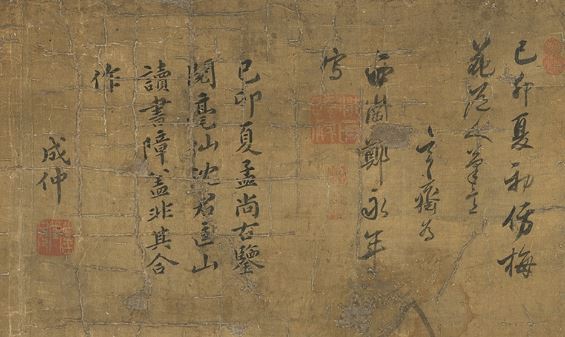 己卯夏初仿梅
花道人筆意
齋為
鄭永年
寫
己卯夏孟尚古鑒
閱毫仙沈君畫山
讀書障蓋非其合
作
成仲